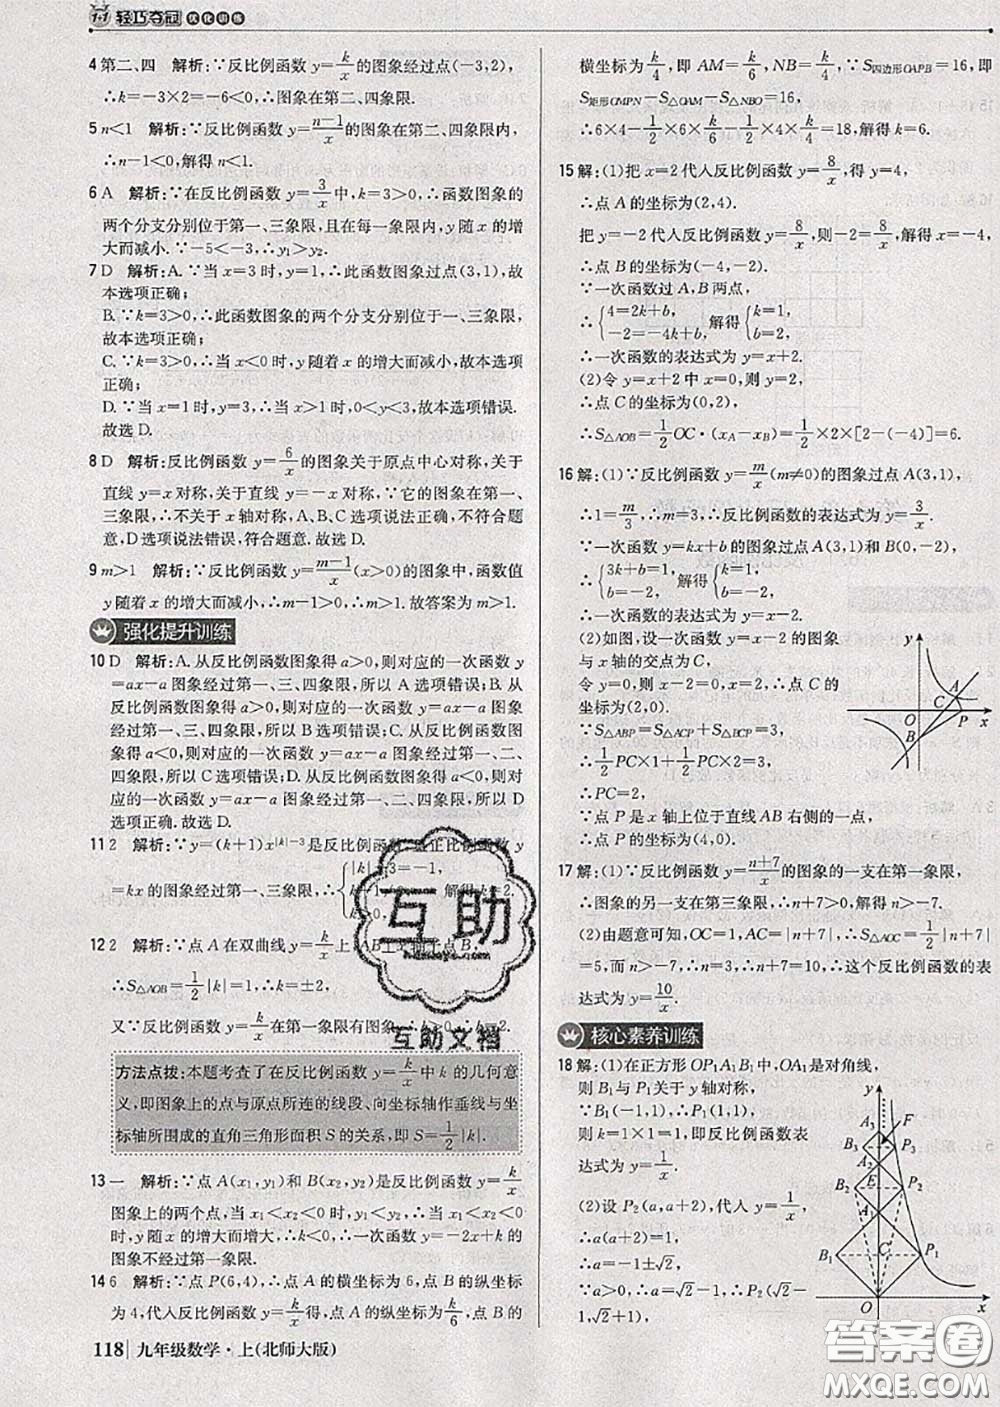 1+1 轻巧夺冠 优化训练
4 第二、四 解析:∵反比例函数 y=k/x 的图象经过点(-3,2),
∴k=-3×2=-6<0,∴图象在第二、四象限.
5 n<1 解析:∵反比例函数 y=(n-1)/x 的图象在第二、四象限内,
∴n-1<0,解得 n<1.
6 A 解析:∵在反比例函数 y=3/x 中,k=3>0,∴函数图象的
两个分支分别位于第一、三象限,且在每一象限内,y 随 x 的增
大而减小.∵-5<-3,∴y₁>y₂.
7 D 解析:A.∵当 x=3 时,y=1,∴此函数图象过点(3,1),故
本选项正确;
B.∵k=3>0,∴此函数图象的两个分支分别位于一、三象限,
故本选项正确;
C.∵k=3>0,∴当 x<0 时,y 随着 x 的增大而减小,故本选项
正确;
D.∵当 x=1 时,y=3,∴当 x>1 时,0<y<3,故本选项错误.
故选 D.
8 D 解析:反比例函数 y=6/x 的图象关于原点中心对称,关于
直线 y=x 对称,关于直线 y=-x 对称.∵它的图象在第一、
三象限,∴不关于 x 轴对称,A、B、C 选项说法正确,不符合题
意,D 选项说法错误,符合题意.故选 D.
9 m>1 解析:∵反比例函数 y=(m-1)/x(x>0)的图象中,函数值
y 随着 x 的增大而减小,∴m-1>0,∴m>1.故答案为 m>1.
强化提升训练
10 D 解析:A.从反比例函数图象得 a>0,则对应的一次函数 y
=ax-a 图象经过第一、三、四象限,所以 A 选项错误;B.从
反比例函数图象得 a>0,则对应的一次函数 y=ax-a 图象
经过第一、三、四象限,所以 B 选项错误;C.从反比例函数图
象得 a<0,则对应的一次函数 y=ax-a 图象经过第一、二、
四象限,所以 C 选项错误;D.从反比例函数图象得 a<0,则
对应的一次函数 y=ax-a 图象经过第一、二、四象限,所以 D
选项正确.故选 D.
11 2 解析:∵y=(k+1)x^{|k|-3}是反比例函数,且正比例函数 y
=kx 的图象经过第一、三象限,∴{|k|-3=-1, k+1≠0, 解得 k=2.
12 2 解析:∵点 A 在双曲线 y=k/x 上,AB⊥x 轴于点 B,
∴S△AOB=1/2|k|=1,∴k=±2.
又∵反比例函数 y=k/x 在第一象限有图象,∴k>0,∴k=2.
方法点拨:本题考查了在反比例函数 y=k/x 中 k 的几何意
义,即图象上的点与原点所连的线段、向坐标轴作垂线与坐
标轴所围成的直角三角形面积 S 的关系,即 S=1/2|k|.
13 一 解析:∵点 A(x₁,y₁)和 B(x₂,y₂)是反比例函数 y=k/x
图象上的两个点,当 x₁<x₂<0 时,y₁<y₂,∴当 x₁<x₂<0
时,y 随 x 的增大而增大,∴k<0,∴一次函数 y=-2x+k 的
图象不经过第一象限.
14 6 解析:∵点 P(6,4),∴点 A 的横坐标为 6,点 B 的纵坐标
为 4,代入反比例函数 y=k/x 得,点 A 的纵坐标为 k/6,点 B 的
118 九年级数学·上(北师大版)
横坐标为 k/4,即 AM=k/6,NB=k/4,∵S四边形OAPB=16,即
S矩形OMPN-S△OAM-S△NBO=16,
∴6×4-1/2×6×k/6-1/2×4×k/4=18,解得 k=6.
15 解:(1)把 x=2 代入反比例函数 y=8/x,得 y=4,
∴点 A 的坐标为(2,4).
把 y=-2 代入反比例函数 y=8/x,则-2=8/x,解得 x=-4,
∴点 B 的坐标为(-4,-2).
∵一次函数过 A,B 两点,
∴{4=2k+b, -2=-4k+b, 解得{k=1, b=2,
∴一次函数的表达式为 y=x+2.
(2)令 y=x+2 中 x=0,则 y=2,
∴点 C 的坐标为(0,2),
∴S△AOB=1/2 OC·(xA-xB)=1/2×2×[2-(-4)]=6.
16 解:(1)∵反比例函数 y=m/x(m≠0)的图象过点 A(3,1),
∴1=m/3,∴m=3,∴反比例函数的表达式为 y=3/x.
∵一次函数 y=kx+b 的图象过点 A(3,1)和 B(0,-2),
∴{3k+b=1, b=-2, 解得{k=1, b=-2,
∴一次函数的表达式为 y=x-2.
(2)如图,设一次函数 y=x-2 的图象
与 x 轴的交点为 C.
令 y=0,则 x-2=0,x=2,∴点 C 的
坐标为(2,0).
∵S△ABP=S△ACP+S△BCP=3,
∴1/2 PC×1+1/2 PC×2=3,
∴PC=2.
∵点 P 是 x 轴上位于直线 AB 右侧的一点,
∴点 P 的坐标为(4,0).
y
A
C
O
P
x
B
17 解:(1)∵反比例函数 y=(n+7)/x 的图象的一支在第一象限,
∴图象的另一支在第三象限,∴n+7>0,解得 n>-7.
(2)由题意可知,OC=1,AC=|n+7|,∴S△AOC=1/2|n+7|
=5,而 n>-7,∴n+7>0,∴n+7=10,∴这个反比例函数的表
达式为 y=10/x.
核心素养训练
18 解:(1)在正方形 OP₁A₁B₁中,OA₁是对角线,
则 B₁与 P₁关于 y 轴对称,
∵B₁(-1,1),∴P₁(1,1),
则 k=1×1=1,即反比例函数表
达式为 y=1/x.
(2)设 P₂(a,a+2),代入 y=1/x,
∴a(a+2)=1,
∵a>0,∴a=√2-1,∴P₂(√2-
1,√2+1).
y
F
A₃
B₃
P₃
A₂
E
B₂
P₂
A₁
C
B₁
P₁
O
x
互助
互助文档
答案圈
MXQE.COM